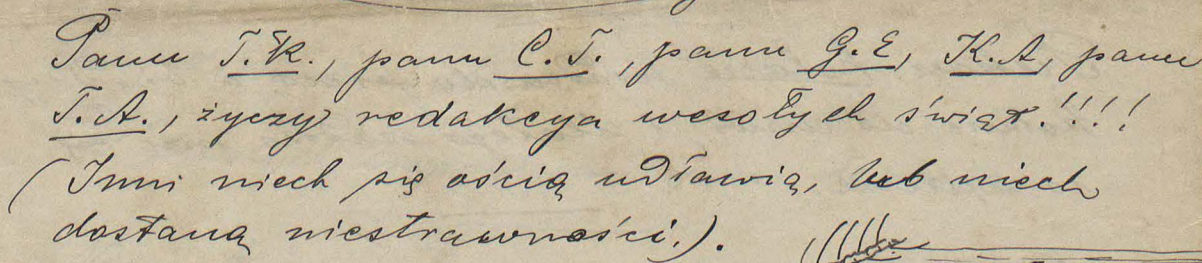 Panu T.K., panu C.T., panu G.E, K.A, panu
T.A., życzy redakcya wesołych świąt!!!!
(Inni niech się ością udławią, lub niech
dostaną niestrawności.).